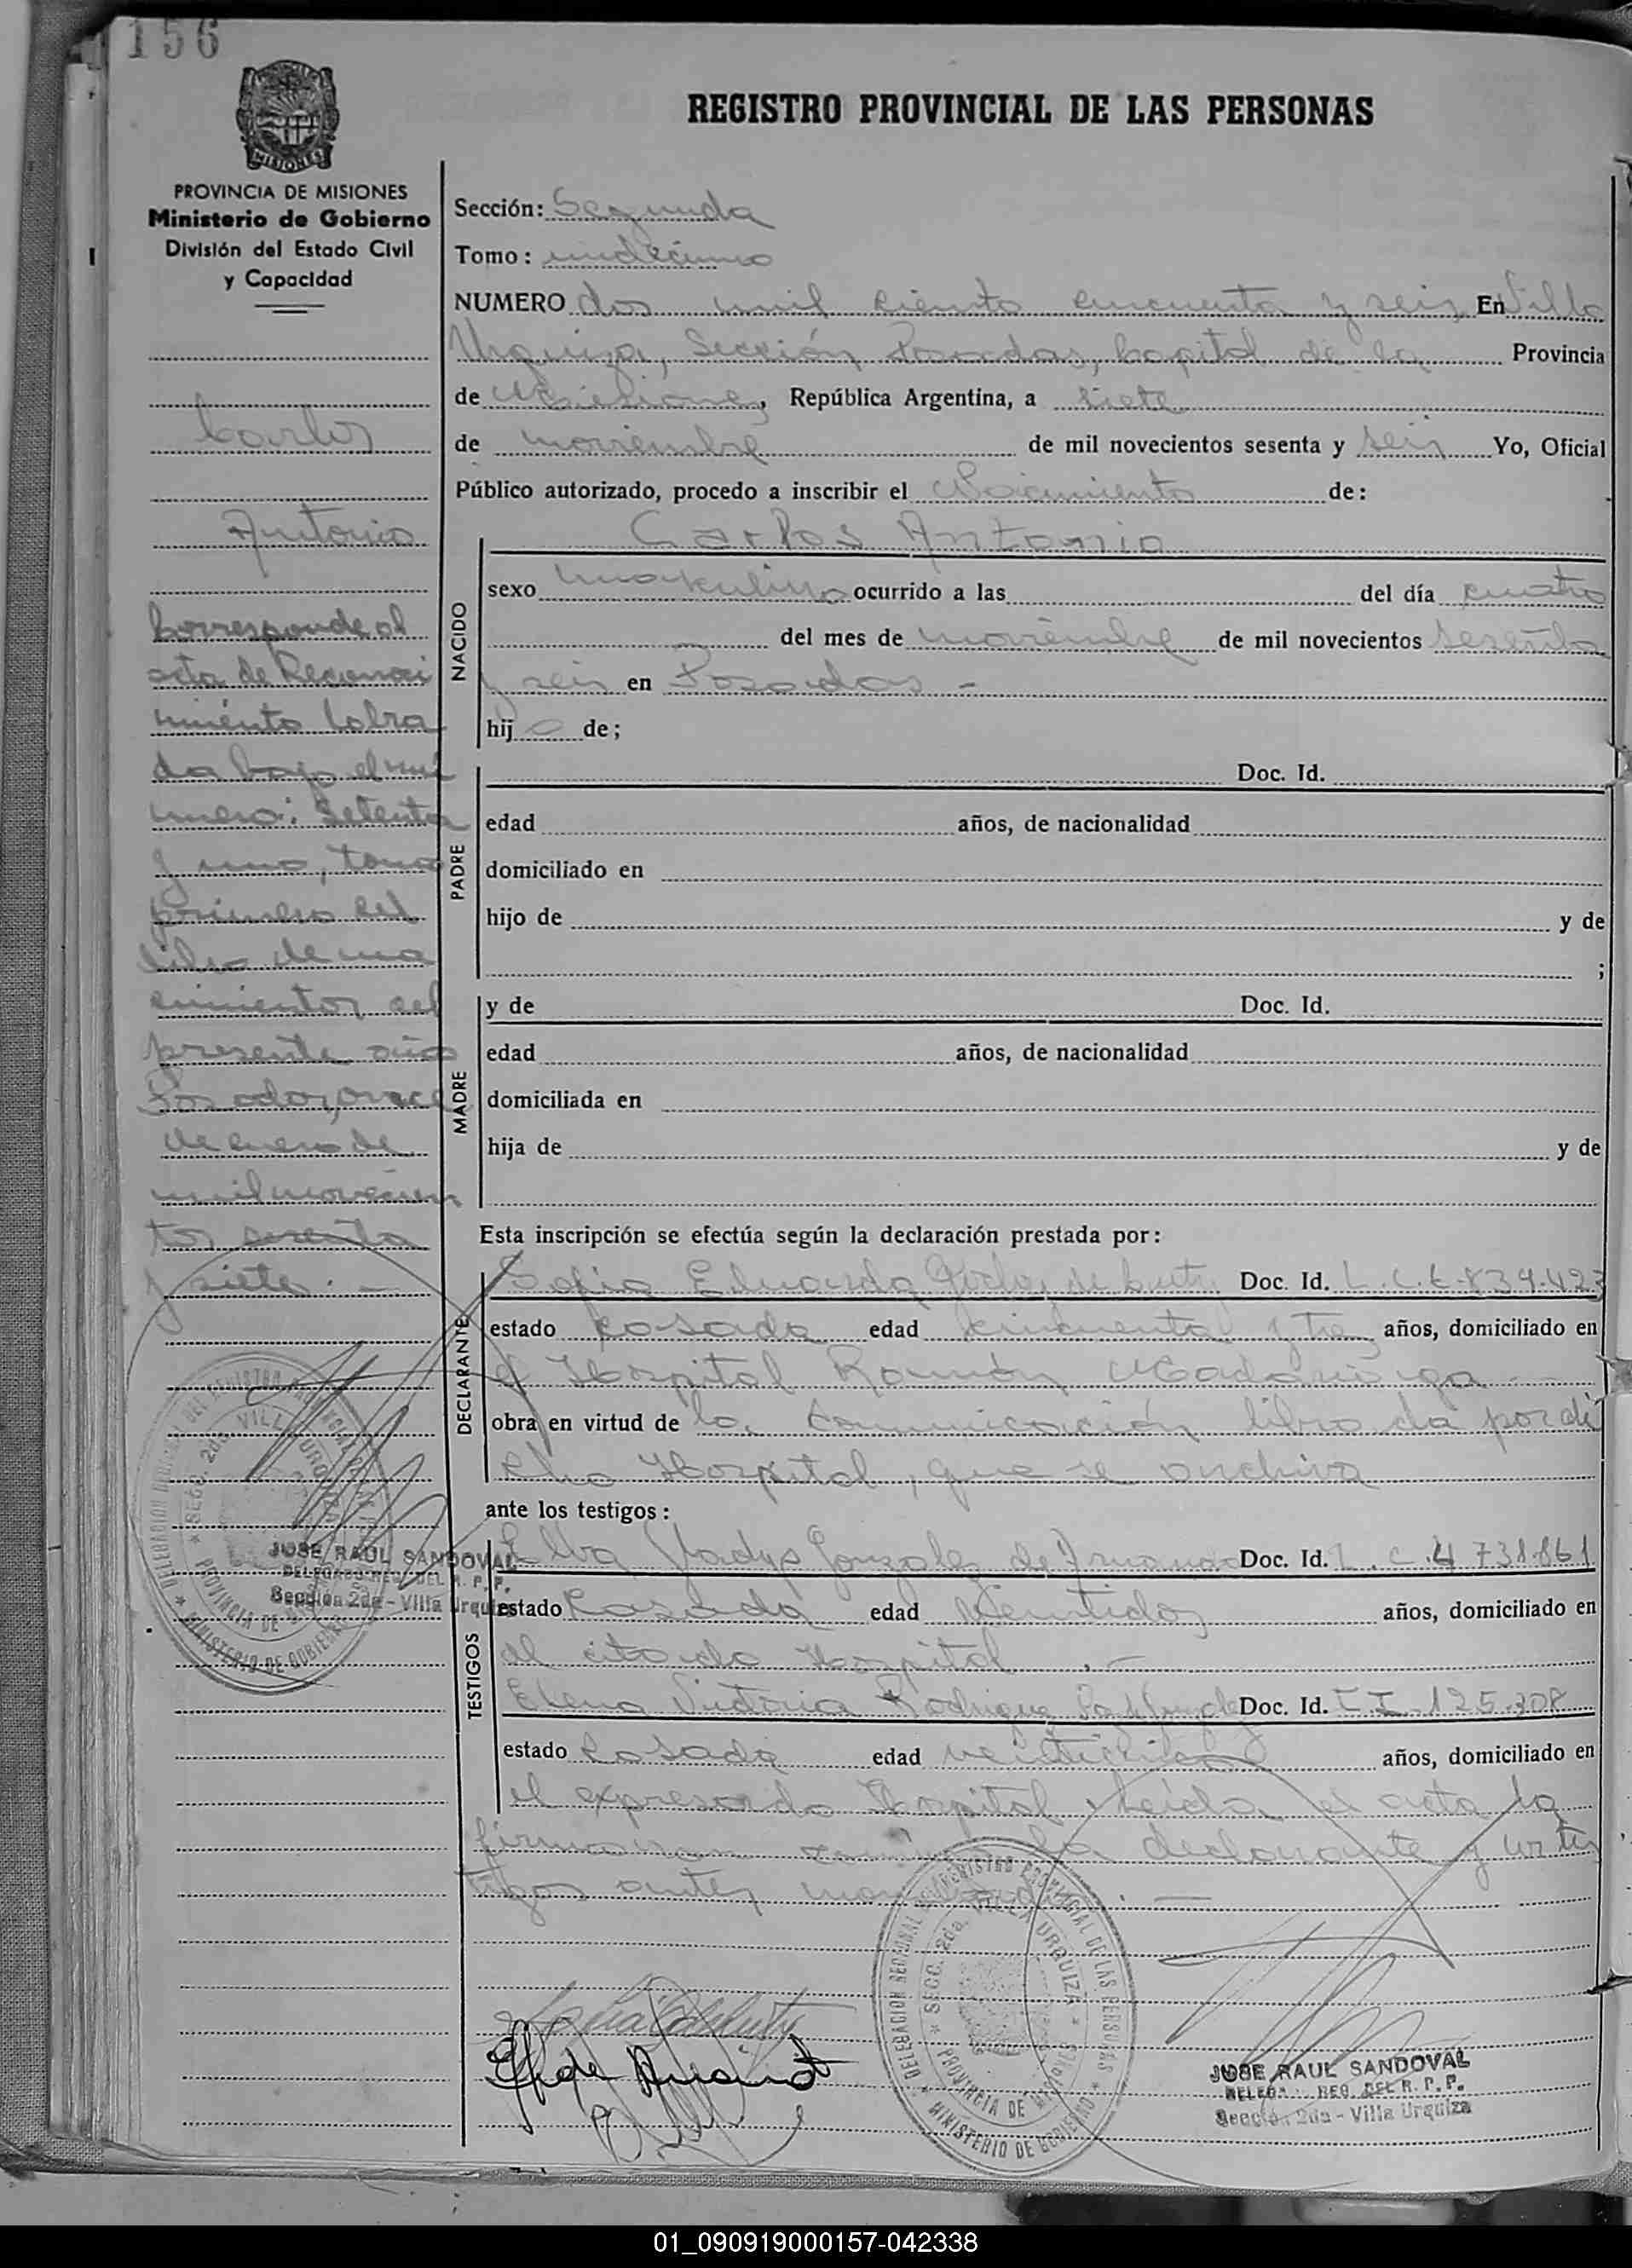 156
REGISTRO PROVINCIAL DE LAS PERSONAS
PROVINCIA DE MISIONES
Ministerio de Gobierno
División del Estado Civil
y Capacidad
Carlos
Antonio
Corresponde al
acta de Reconoci
miento labra
da bajo el nú
mero: Setenta
y uno, tomo
primero del
libro de na
cimientos del
presente año
Posadas, once
de enero de
mil novecien
tos sesenta
y siete. -
Sección: Segunda
Tomo: undécimo
NUMERO dos mil ciento cincuenta y seis En Villa
Urquiza, Sección Posadas, Capital de la Provincia
de Misiones, República Argentina, a siete
de noviembre de mil novecientos sesenta y seis Yo, Oficial
Público autorizado, procedo a inscribir el Nacimiento de:
NACIDO
Carlos Antonio
sexo masculino ocurrido a las del día cuatro
del mes de noviembre de mil novecientos sesenta
y seis en Posadas -
hijo de;
PADRE
Doc. Id.
edad años, de nacionalidad
domiciliado en
hijo de y de
;
MADRE
y de Doc. Id.
edad años, de nacionalidad
domiciliada en
hija de y de
Esta inscripción se efectúa según la declaración prestada por:
DECLARANTE
Sofia Eduarda Godoy de Doc. Id. L.C.6.839.423
estado casada edad cincuenta y tres años, domiciliado en
el Hospital Ramón Madariaga
obra en virtud de la comunicación librada por di
cho Hospital, que se archiva
ante los testigos:
TESTIGOS
Elba Gladys Gonzalez de Doc. Id. L.C.4.738.861
estado Casada edad veintidos años, domiciliado en
al citado Hospital . -
Elena Victoria Rodriguez Doc. Id. C.I. 125.308
estado Casada edad años, domiciliado en
el expresado Hospital, Leída el acta la
firmaron conmigo la declarante y los tes
tigos antes mencionados. -
DELEGACION REGIONAL DEL REGISTRO PROVINCIAL DE LAS PERSONAS
* SECC. 2da. VILLA URQUIZA *
PROVINCIA DE MISIONES
* MINISTERIO DE GOBIERNO *
JOSE RAUL SANDOVAL
DELEGADO REG. DEL R. P. P.
Sección 2da - Villa Urquiza
DELEGACION REGIONAL DEL REGISTRO PROVINCIAL DE LAS PERSONAS
* SECC. 2da. VILLA URQUIZA *
PROVINCIA DE MISIONES
* MINISTERIO DE GOBIERNO *
JOSE RAUL SANDOVAL
DELEGADO REG. DEL R. P. P.
Sección 2da - Villa Urquiza
01_090919000157-042338